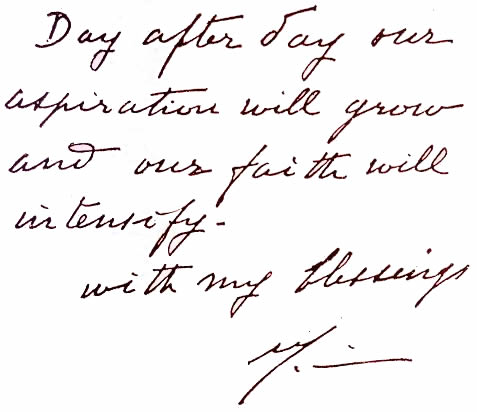 Day after day our
aspiration will grow
and our faith will
intensify.
with my blessings